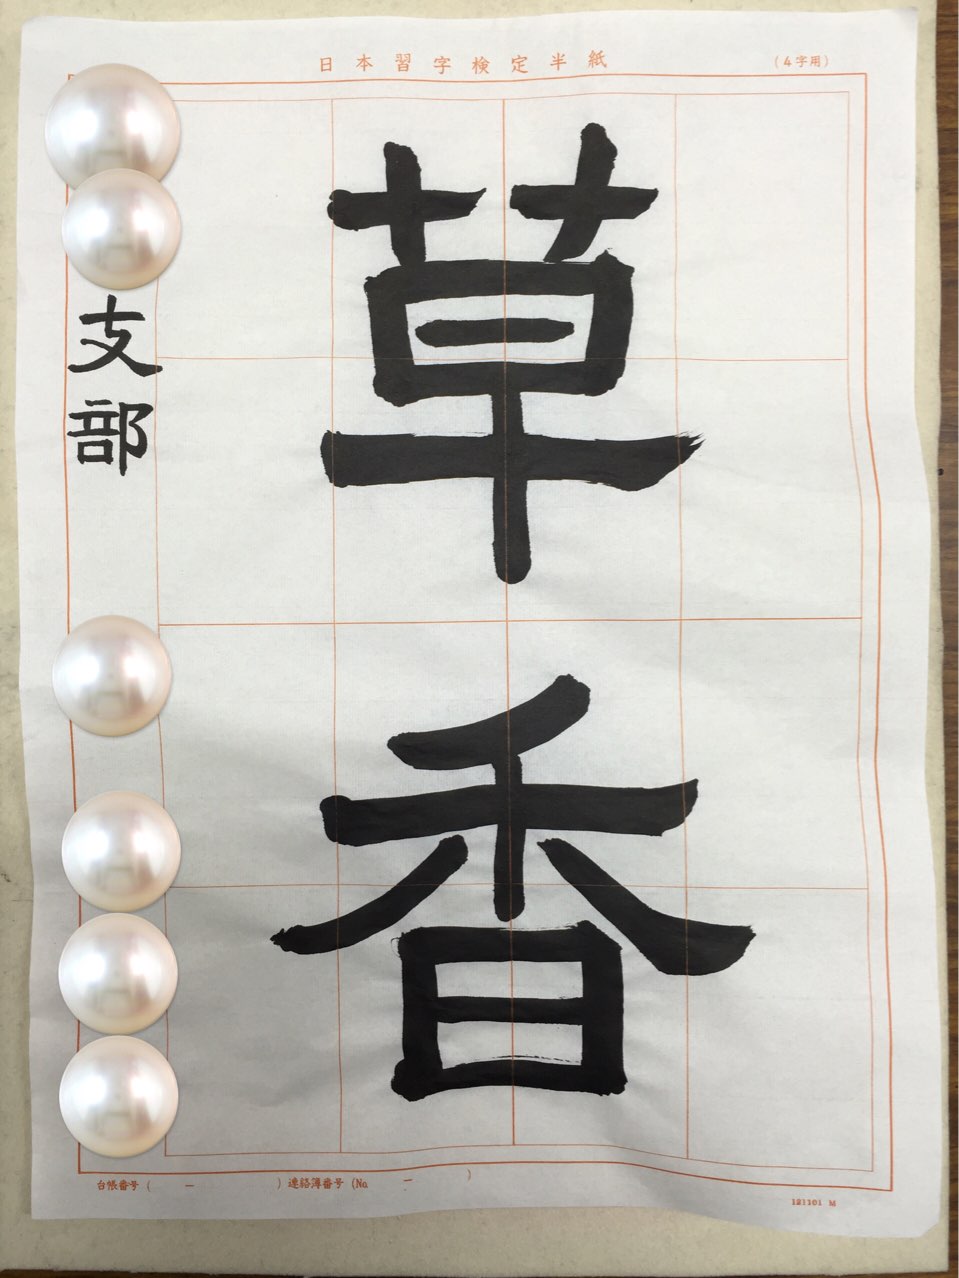 日本習字検定半紙
(4字用)
草香
支部
台帳番号 ( － ) 連絡簿番号 (No. － )
121101 M